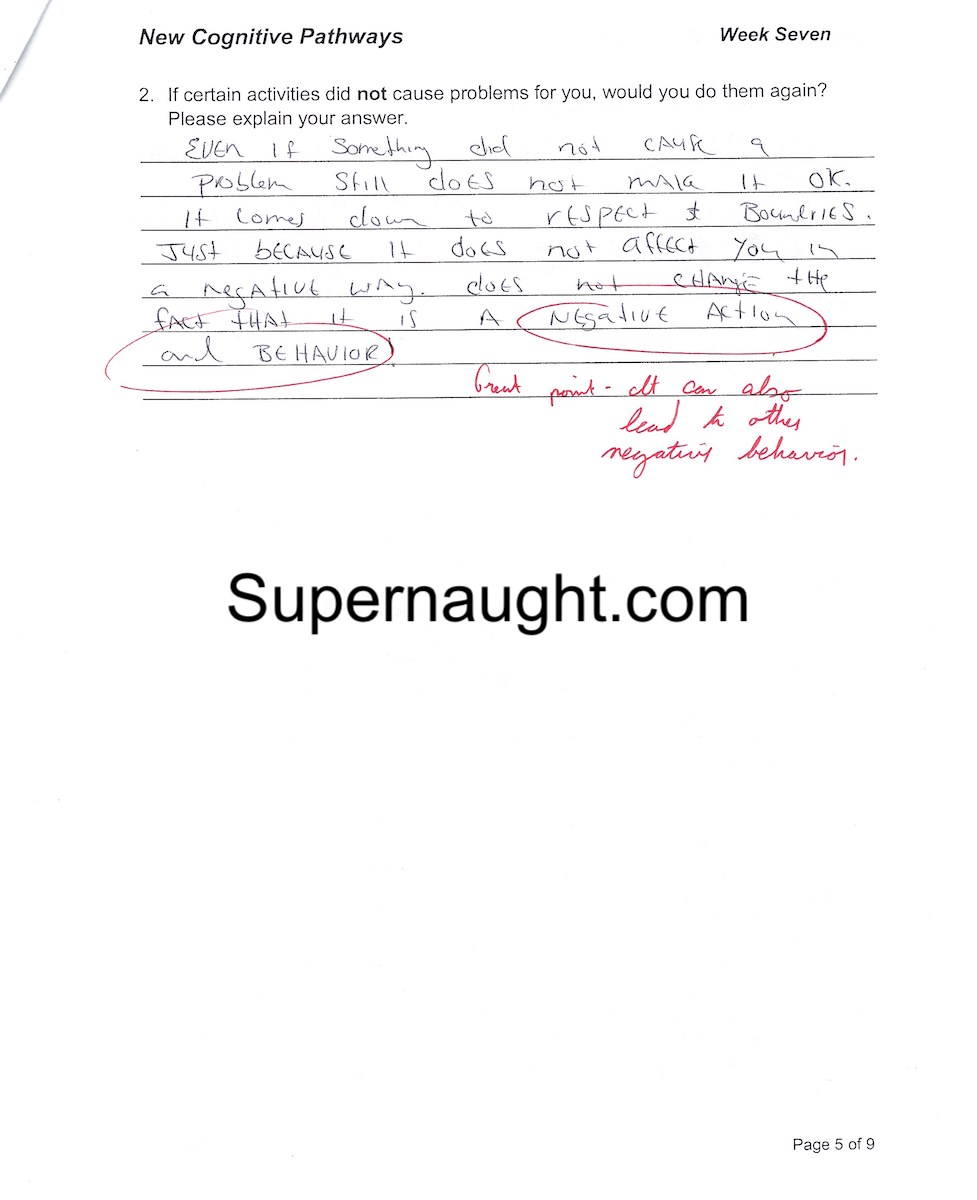 New Cognitive Pathways Week Seven
2. If certain activities did not cause problems for you, would you do them again?
Please explain your answer.
EVEn If Something did not CAUSE a
Problem Still does not make It OK.
It Comes down to rESPECt & BoundriES.
JUSt bECAUSE It doES not affECt You in
a negAtIVE WAy. doES not CHANGE tHe
fACt THAt it is A NEgative ACtIon
and BEHAVIOR.
Great point - It can also
lead to other
negative behavior.
Supernaught.com
Page 5 of 9